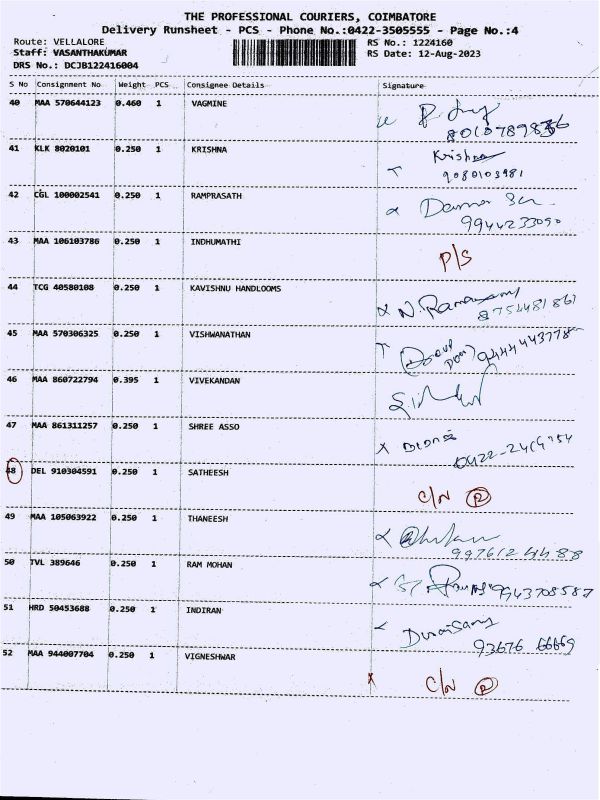 THE PROFESSIONAL COURIERS, COIMBATORE
Delivery Runsheet - PCS - Phone No.:0422-3505555 - Page No.:4
Route: VELLALORE RS No.: 1224160
Staff: VASANTHAKUMAR RS Date: 12-Aug-2023
DRS No.: DCJB122416004
S No Consignment No Weight PCS Consignee Details Signature
40 MAA 570644123 0.460 1 VAGMINE
8010789836
41 KLK 8020101 0.250 1 KRISHNA Krishna
9080103981
42 CGL 100002541 0.250 1 RAMPRASATH
9944233090
43 MAA 106103786 0.250 1 INDHUMATHI P/S
44 TCG 40580108 0.250 1 KAVISHNU HANDLOOMS N. Ramasamy
8754481861
45 MAA 570306325 0.250 1 VISHWANATHAN
46 MAA 860722794 0.395 1 VIVEKANDAN
47 MAA 861311257 0.250 1 SHREE ASSO
48 DEL 910304591 0.250 1 SATHEESH C/N R
49 MAA 105063922 0.250 1 THANEESH
9976124488
50 TVL 389646 0.250 1 RAM MOHAN 9943705587
51 HRD 50453688 0.250 1 INDIRAN Duraisamy
93676 66669
52 MAA 944007704 0.250 1 VIGNESHWAR
x C/N R